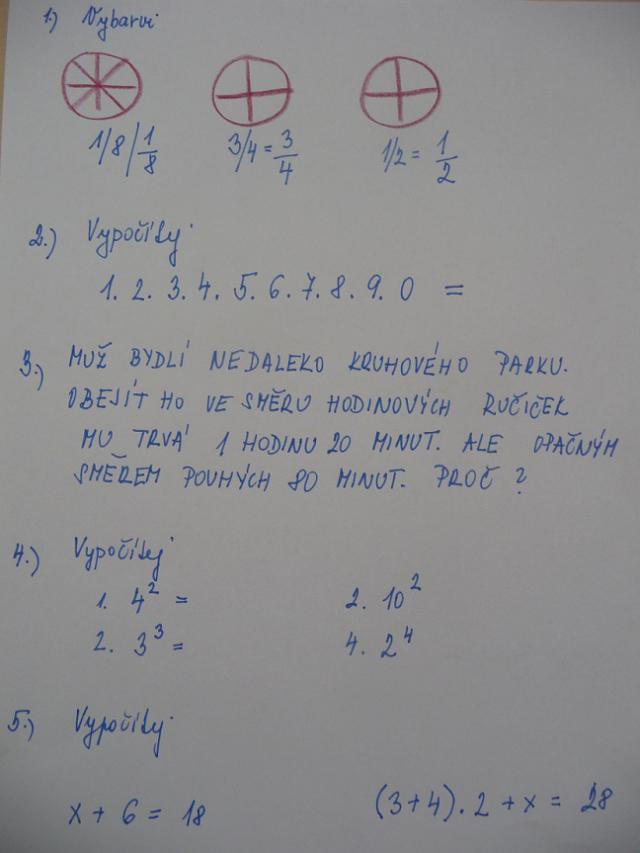 1.) Vybarvi
1/8 / 1/8 3/4 = 3/4 1/2 = 1/2
2.) Vypočítej
1. 2. 3. 4. 5. 6. 7. 8. 9. 0 =
3.) MUŽ BYDLÍ NEDALEKO KRUHOVÉHO PARKU.
OBEJÍT HO VE SMĚRU HODINOVÝCH RUČIČEK
MU TRVÁ 1 HODINU 20 MINUT. ALE OPAČNÝM
SMĚREM POUHÝCH 80 MINUT. PROČ ?
4.) Vypočítej
1. 4² = 2. 10²
2. 3³ = 4. 2⁴
5.) Vypočítej
x + 6 = 18 (3+4). 2 + x = 28